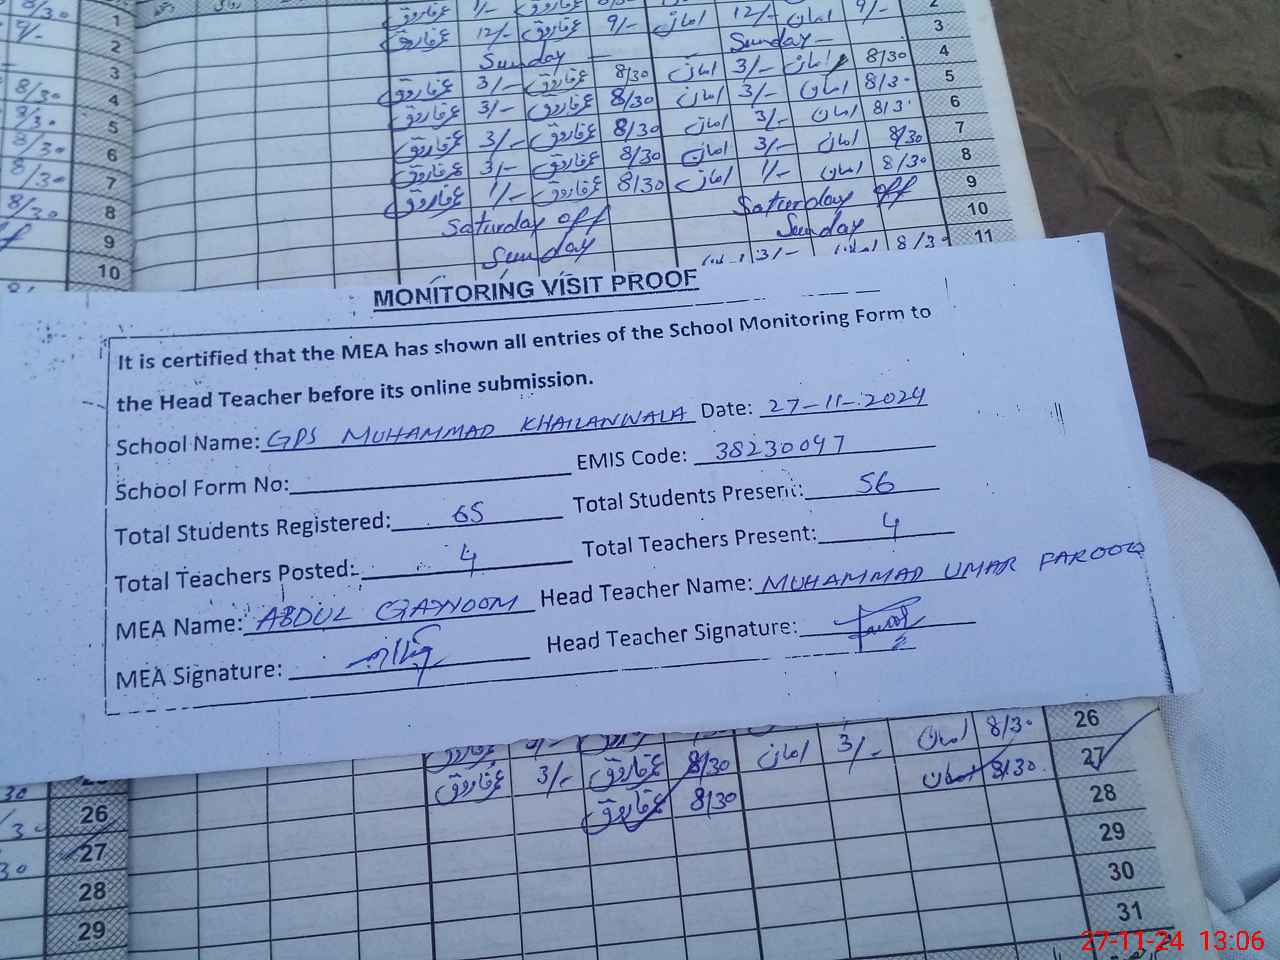 8/30 1 عمرفاروق 1/- عمرفاروق 2
9/- 2 عمرفاروق 12/- عمرفاروق 9/- امان 12/- امان 9/- 3
3 Sunday Sunday 4
8/30 4 عمرفاروق 3/- عمرفاروق 8/30 امان 3/- امان 8/30 5
8/30 5 عمرفاروق 3/- عمرفاروق 8/30 امان 3/- امان 8/30 6
8/30 6 عمرفاروق 3/- عمرفاروق 8/30 امان 3/- امان 8/30 7
8/30 7 عمرفاروق 3/- عمرفاروق 8/30 امان 3/- امان 8/30 8
8/30 8 عمرفاروق 1/- عمرفاروق 8/30 امان 1/- امان 8/30 9
9 Saturday off Saturday off 10
10 Sunday Sunday 11
3/- 8/30
MONITORING VISIT PROOF
It is certified that the MEA has shown all entries of the School Monitoring Form to
the Head Teacher before its online submission.
School Name: GPS MUHAMMAD KHAILANWALA Date: 27-11-2024
School Form No: EMIS Code: 38230097
Total Students Registered: 65 Total Students Present: 56
Total Teachers Posted: 4 Total Teachers Present: 4
MEA Name: ABDUL QAYYOOM Head Teacher Name: MUHAMMAD UMAR FAROOQ
MEA Signature: Head Teacher Signature:
امان 3/- امان 8/30 26
26 عمرفاروق 3/- عمرفاروق 8/30 امان 8/30 27
27 عمرفاروق 8/30 28
28 29
29 30
31
27-11-24 13:06